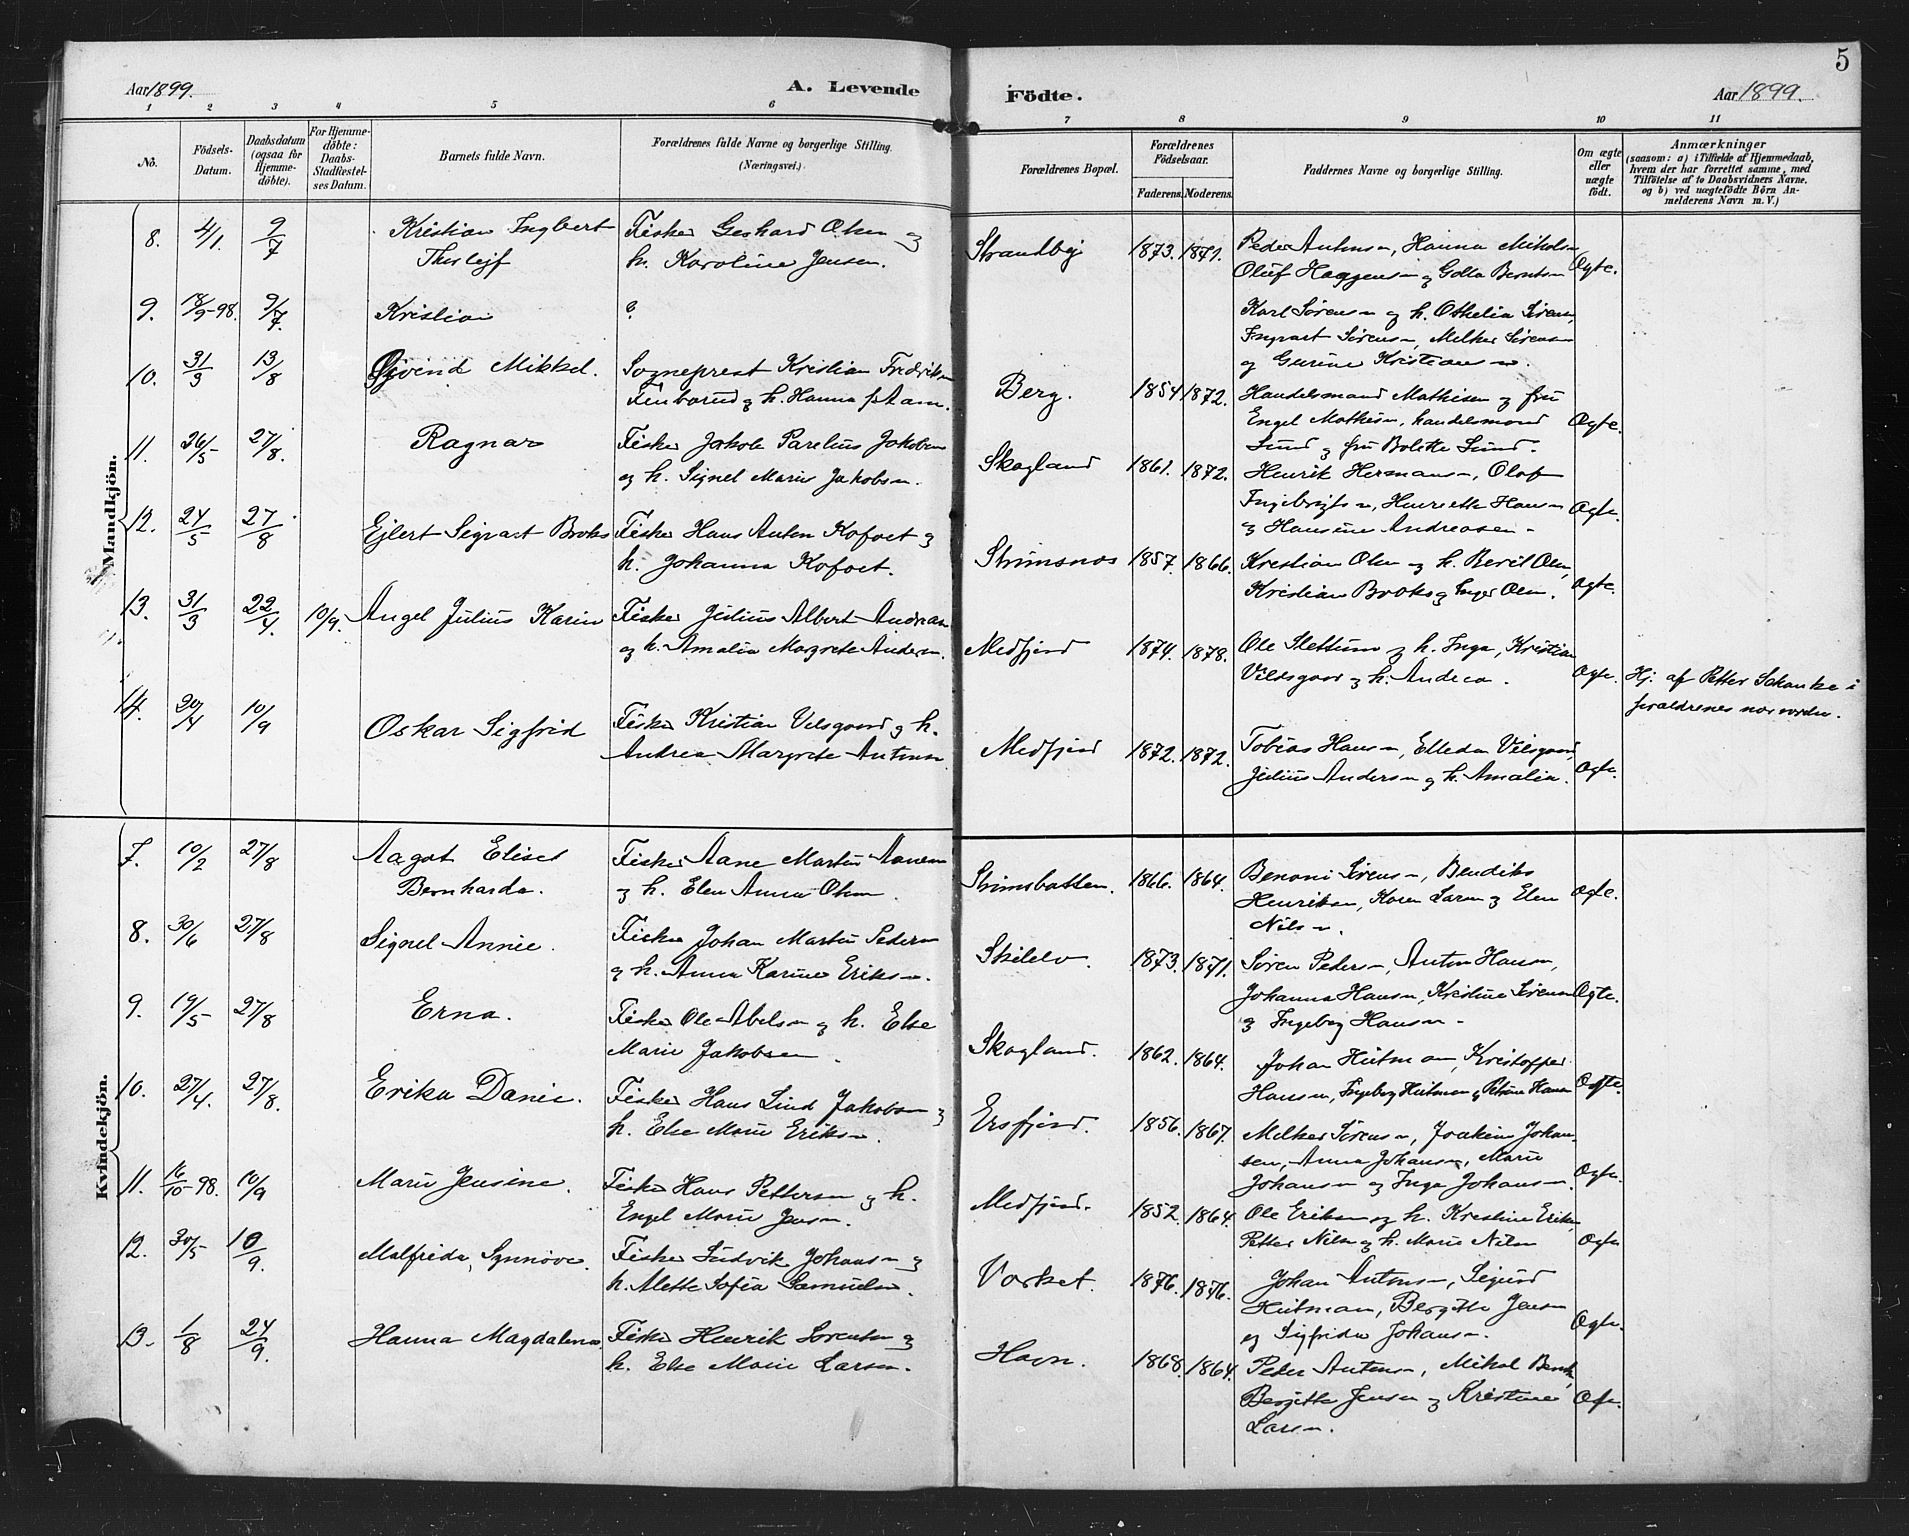 5
Aar 1899.
A. Levende
Födte.
Aar 1899.
1 2 3 4 5 6 7 8 9 10 11
No.
Födsels-
Datum.
Daabsdatum
(ogsaa for
Hjemme-
döbte).
For Hjemme-
döbte:
Daabs-
Stadfæstel-
ses Datum.
Barnets fulde Navn.
Forældrenes fulde Navne og borgerlige Stilling.
(Næringsvei.)
Forældrenes Bopæl.
Forældrenes
Födselsaar.
Faderens. Moderens.
Faddernes Navne og borgerlige Stilling.
Om ægte
eller
uægte
födt.
Anmærkninger
(saasom: a) i Tilfælde af Hjemmedaab,
hvem der har forrettet samme, med
Tilföielse af to Daabsvidners Navne,
og b) ved uægtefödte Börn An-
melderens Navn m. V.)
Mandkjön.
8. 4/1. 9/7 Kristian Ingbert
Thorlejf
Fisker Gerhard Olsen og
h. Karoline Jensen.
Strandbej 1873. 1871.
Peder Antonsen, Hanna Mikals
Oluf Haagensen og Golla Berntsen
Ægte.
9. 18/9-98. 9/7. Kristian ?
Karl Sørensen og h. Othelia Sørens,
Ingvart Sørensen, Melker Sørensen
og Gurine Kristiansen.
10. 31/3 13/8 Øjvind Mikkel.
Sogneprest Kristian Fredrik
og h. Hanna f. Aam.
Berg. 1854 1872.
Handelsmand Mathisen og fru
Engel Mathisen, handelsmand
Lund og fru Bolette Lund.
Ægte.
11. 26/5 27/8. Ragnar
Fisker Jakob Parelius Jakobsen
og h. Signel Marie Jakobsen.
Skagland 1861. 1872.
Henrik Hermansen, Olaf
Ingebrigtsen, Henriette Hansen
og Hansine Andreasen
Ægte.
12. 24/5 27/8 Ejlert Sigvart Broks
Fisker Hans Anton Kofoet og
h. Johanna Kofoet.
Strimsnes 1857. 1866.
Kristian Olsen og h. Berit Olsen,
Kristian Broks og Inger Olsen.
Ægte.
13. 31/3 22/4 10/9. Angel Julius Karin
Fisker Julius Albert Andreas
og h. Amalia Margrete Andersen.
Medfjord 1874. 1878.
Ole Slettum og h. Inga, Kristian
Vilsgaar og h. Andrea.
Ægte.
Hj. af Petter Schanke i
foraldrenes nærværelse.
14. 30/4 10/9 Oskar Sigfrid
Fisker Kristian Vilsgaard og h.
Andrea Margrete Antonsen
Medfjord 1872. 1872.
Tobias Hansen, Elleda Vilsgaard,
Julius Andersen og h. Amalia.
Ægte.
Kvindekjön.
7. 10/2 27/8 Aagot Eliset
Bernharda.
Fisker Aane Martin Aanesen
og h. Elen Anna Olsen
Strimsbotten. 1866. 1864.
Benoni Sørensen, Bendiks
Henriksen, Karen Larsen og Elen
Nilsen.
Ægte.
8. 30/6 27/8 Signel Annie.
Fisker Johan Martin Pedersen
og h. Anna Karine Eriksen.
1873. 1871.
Søren Pedersen, Anton Hansen,
Johanna Hansen, Kristine Sørensen
og Ingeborg Hansen
Ægte.
9. 19/5 27/8 Erna.
Fisker Ole Abelsen og h. Else
Marie Jakobsen.
Skagland. 1862. 1864.
Johan Hutman, Kristoffer
Hansen, Ingeborg Hutman og Petrine Hansen
Ægte.
10. 27/4. 27/8. Erika Danie.
Fisker Hans Lind Jakobsen og
h. Else Marie Eriksen.
Ersfjord. 1856. 1867.
Melker Sørensen, Joakim Johan-
sen, Anna Johansen, Marie
Johansen og Inga Johansen.
Ægte.
11. 16/10-98. 10/9 Marie Jensine.
Fisker Hans Pettersen og h.
Engel Marie Jensen.
Medfjord. 1852. 1864.
Ole Eriksen og h. Kristine Eriksen
Petter Nilsen og h. Marie Nilsen
Ægte
12. 30/5 10/9. Malfrida, Synnøve.
Fisker Ludvik Johansen og
h. Alette Sofia Samuelsen.
Varket. 1876. 1876.
Johan Antonsen, Sigurd
Hutman, Bergitte Jensen
og Sigfrida Johansen.
Ægte.
13. 1/8 24/9. Hanna Magdalena
Fisker Henrik Lorentsen og
h. Else Marie Larsen.
Havn. 1868. 1864.
Peder Antonsen, Mikal Berntsen,
Bergitte Jensen og Kristine
Larsen.
Ægte.